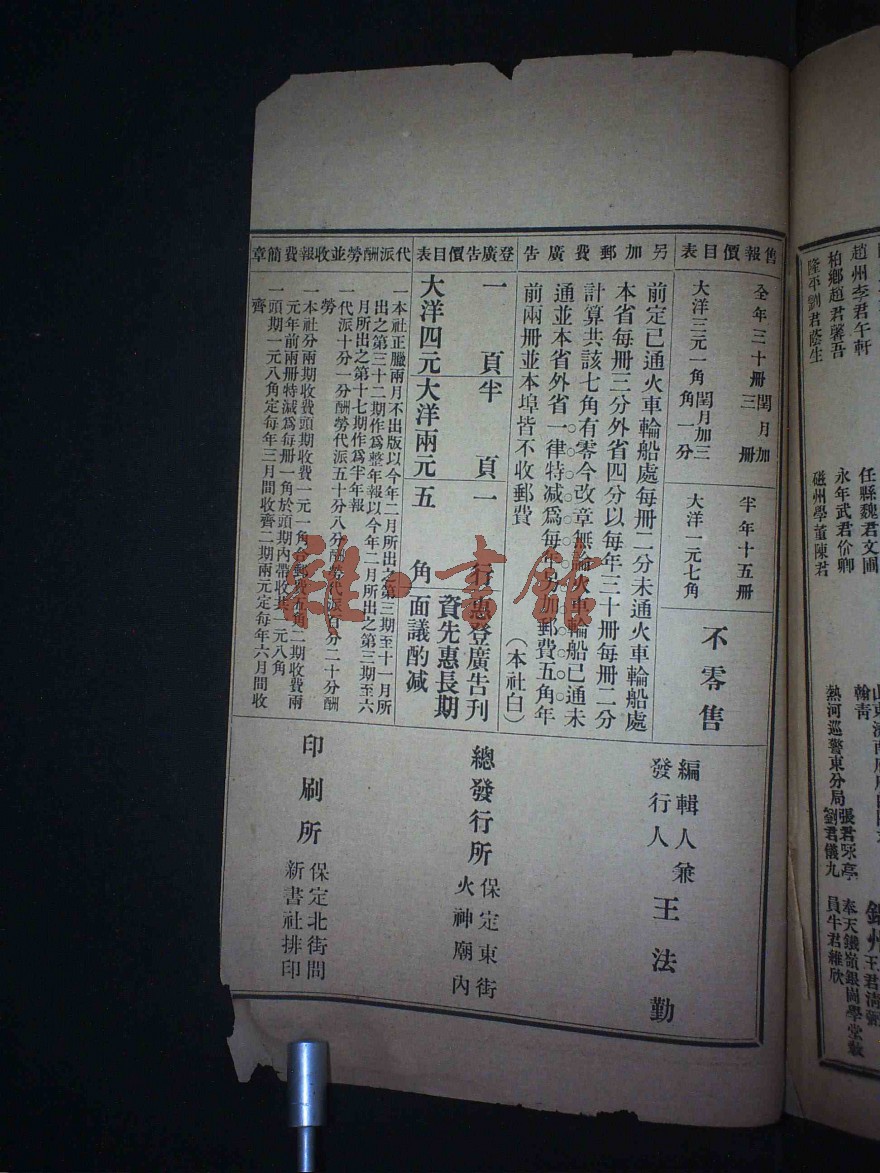 售報價目表
全年三十冊閏月加三冊
大洋三元一角閏月加三角一分
半年十五冊
大洋一元七角
不零售
另加郵費廣告
前定已通火車輪船處每冊二分未通火車輪船處
本省每冊三分外省四分以每年三十冊每冊二分
計算共該七角有零今改章無論火車輪船已通未
通並本省外省一律特減爲每年另加郵費五角年
前兩冊並本埠皆不收郵費
(本社白)
登廣告價目表
一頁
半頁
一行
惠登廣告刊
資先惠長期
面議酌減
大洋四元
大洋兩元
五角
代派酬勞並收報費簡章
一本社正臘兩月不出版以今年二月所出之第三期至十一月所
出之第三十二期作爲整年報以今年二月所出之第三期至六
月所出之第十七期作爲半年報
一代派十分一分酬勞代派五十分八分酬勞代派百分二十分酬
勞
一本社分兩期收費頭期收費一元一角合郵費五角二期收費兩
元年前兩冊特減爲每冊一角於頭期內帶收共一元八角
一頭期一元八角定每年三月間收齊二期兩元定每年六月間收
齊
編輯人兼
發行人
王法勤
總發行所
保定東街
火神廟內
印刷所
保定北街問
新書社排印
趙州李君午軒
柏鄉趙君馨吾
隆平劉君蔭生
任縣魏君文圃
永年武君价卿
磁州學董陳君
翰靑
熱河巡警東分局
張君
劉君儀九
錦州王君
奉天鐵嶺銀岡學堂教
員牛君維欣
雜·書館